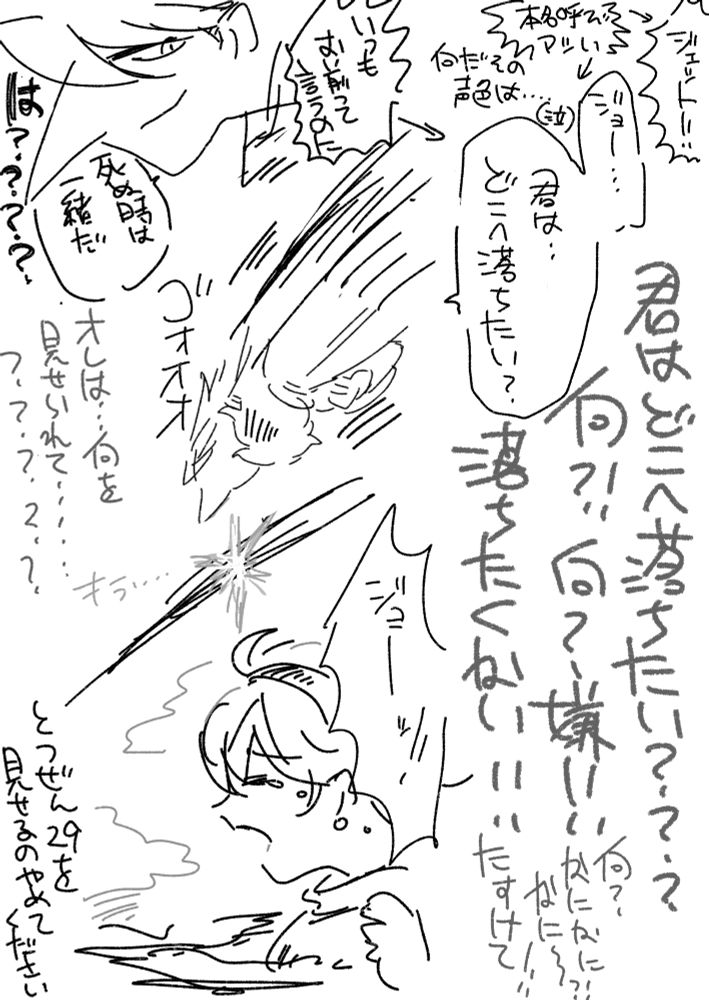 ジェット!!
本名呼び
アツい
何だその
声色は....
(泣)
ジョー…
君は…
どこへ落ちたい?
いつも
お前って
言うのに
は????
死ぬ時は
一緒だ
ゴオオオ
オレは…何を
見せられて......
?????
君はどこへ落ちたい????
何?!!何?!嫌!!!
落ちたくない!!!!
何?
なになに?!
なに〜?!!
たすけて!!
キラ....
ジョーッ
とつぜん29を
見せるのやめて
ください